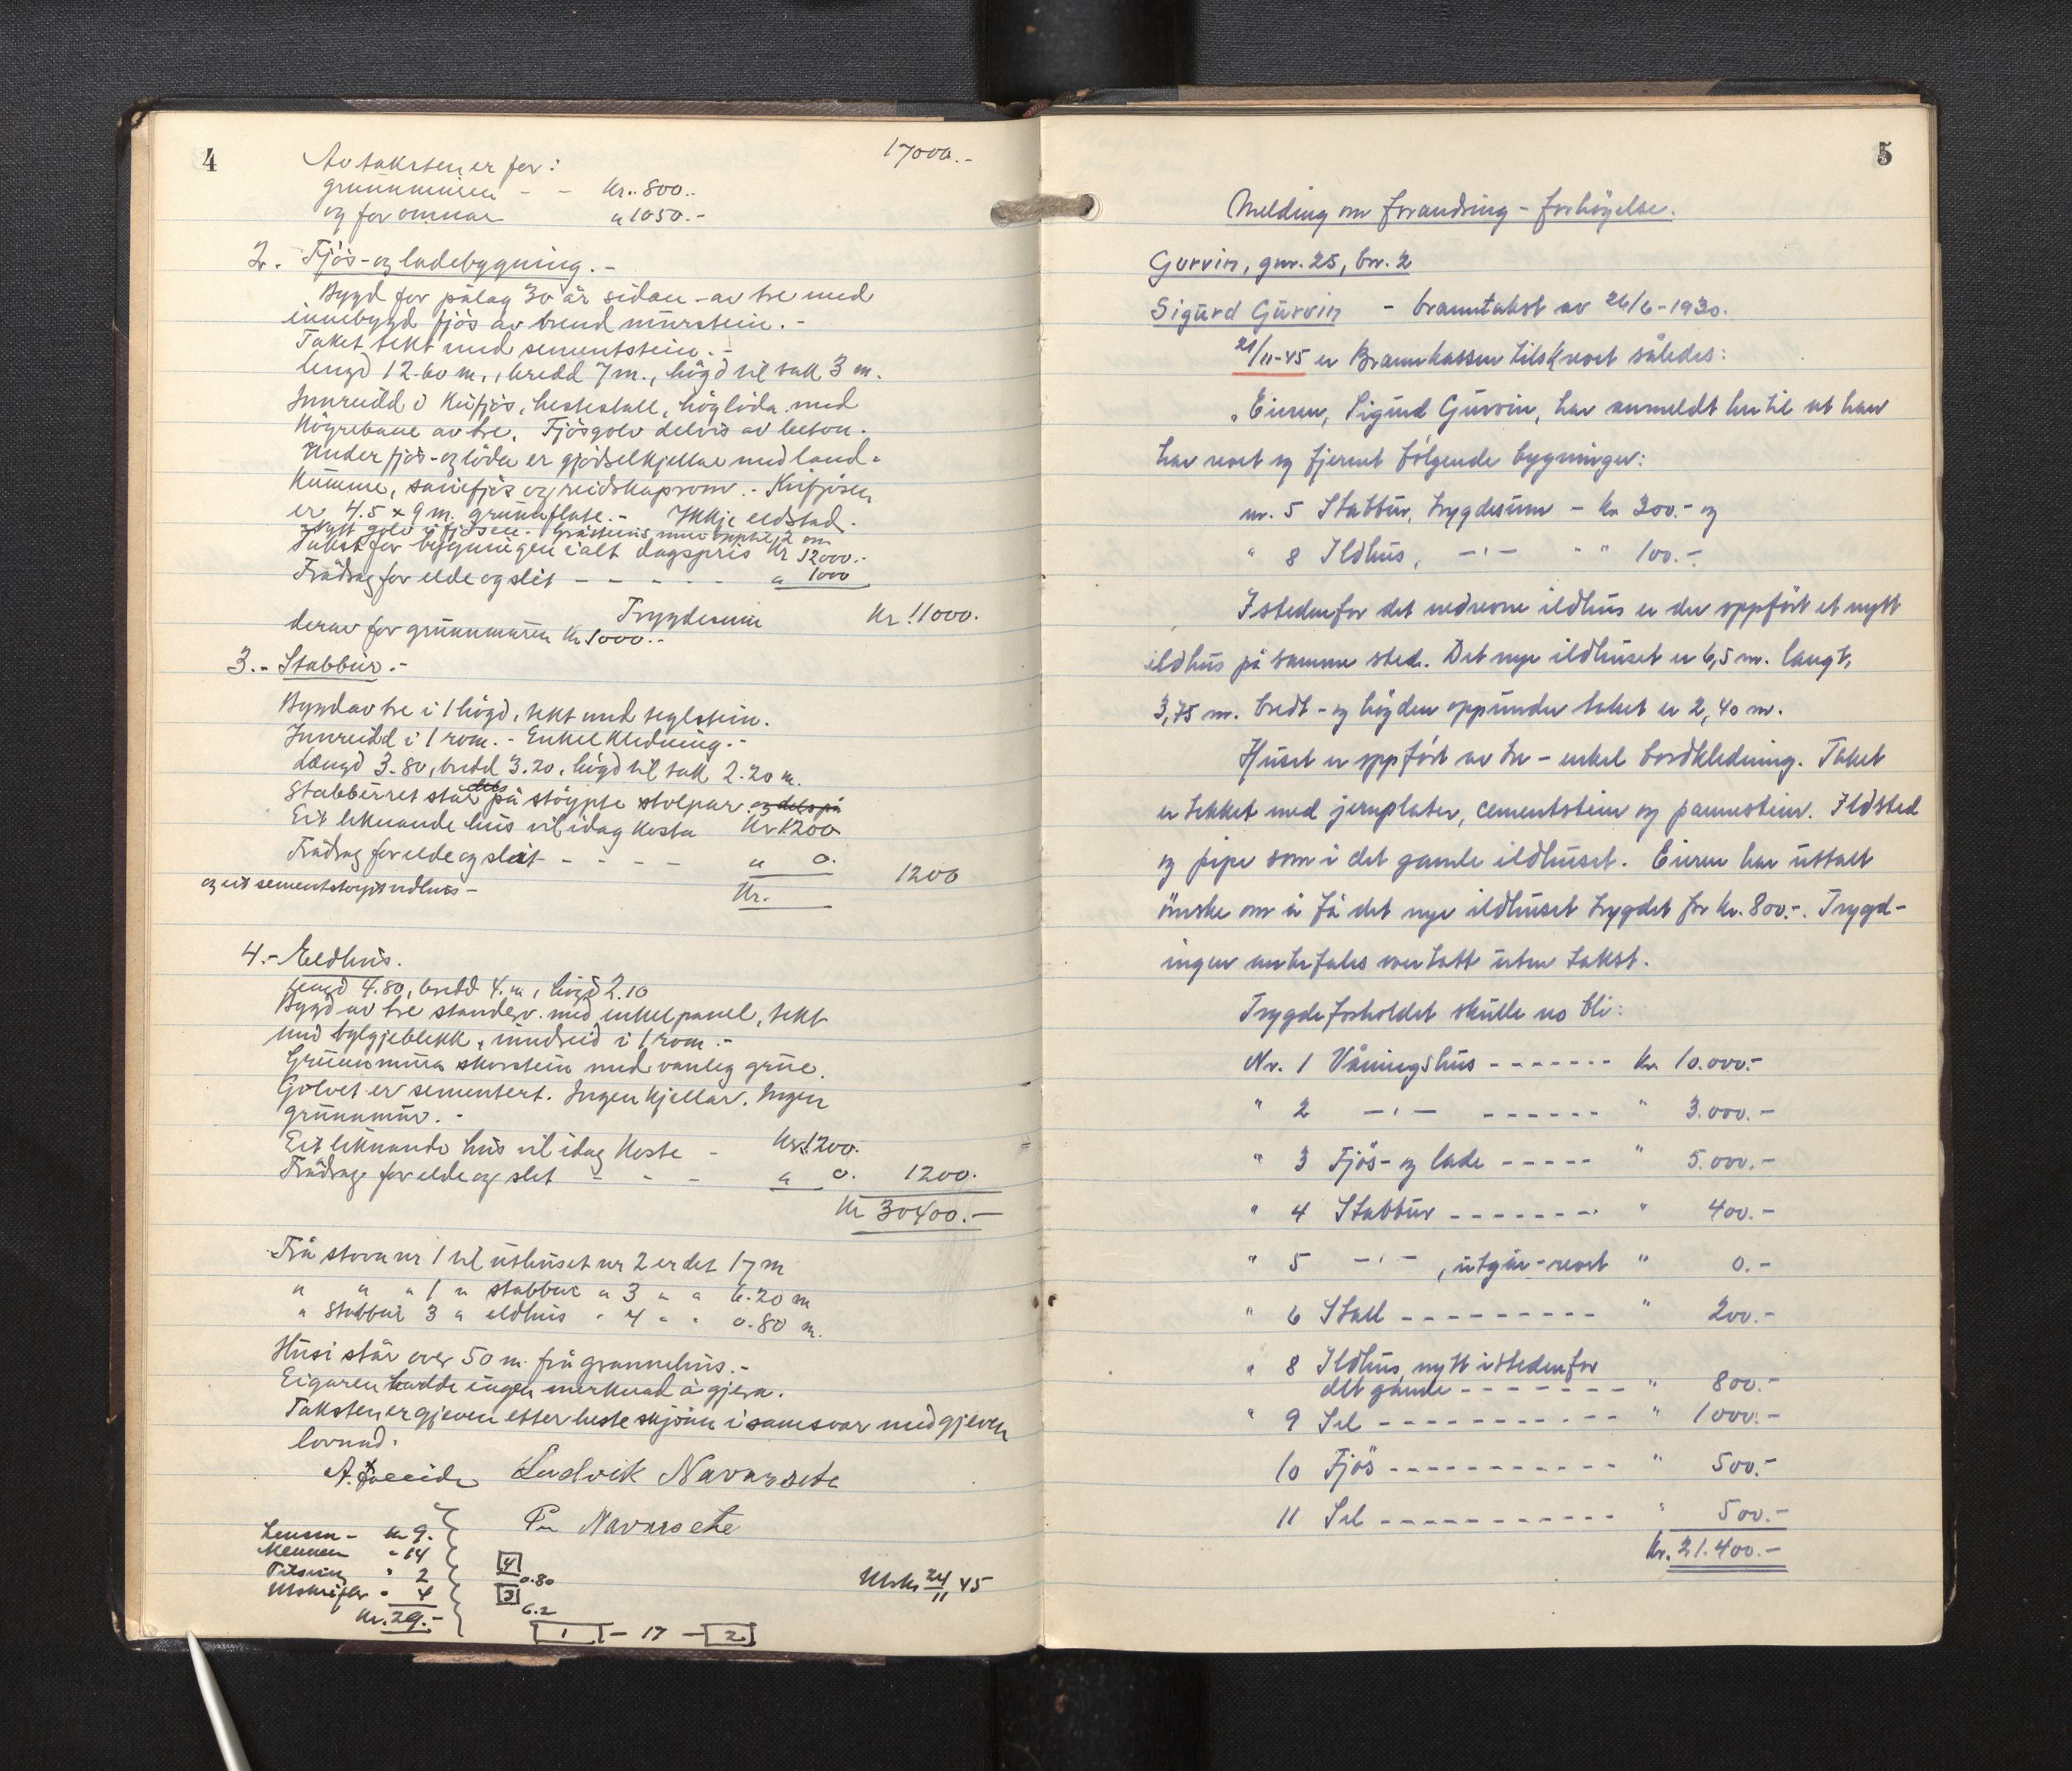 4
17000.-
Av taksten er for:
grunnmuren - - Kr. 800.-
og for omnar " 1050.-
2. Fjós- og ladebygning.-
Bygd for pålag 30 år sidan - av tre med
innebygd fjós av brend murstein.-
Taket tekt med sementstein.-
Lengd 12.60 m., breidd 7 m., högd til tak 3 m.
Innreidd i Kufjós, hestestall, höyløda med
Köyrebane av tre. Fjósgolv delvis av beton.
Under fjós- og löda er gjödselkjellar med land-
Kumme, sauefjós og reidskapsrom.- Kufjósen
er 4.5 x 9 m. grunnflate.- Ikkje eldstad.
Nytt golv i fjósen. Gråsteins mur opptil 2 m
Takst for bygningen i alt dagspris Kr 12000.-
Frådrag for elde og slit - - - - - " 1000
Trygdesum Kr. 11000.
derav for grunnmuren Kr 1000.-
3.- Stabbur.-
Bygd av tre i 1 högd, tekt med teglstein.
Innreidd i 1 rom.- Enkel kledning.-
Lengd 3.80, breidd 3.20, högd til tak 2.20 m.
Stabburet står dels på støypte stolpar og dels på
og eit sementstøypt vedhus-
Eit liknande hus vil idag kosta Kr 1200
Frådrag for elde og slit - - - - " 0.
Kr. 1200
4.- Eldhus.
Lengd 4.80, breidd 4. m, högd 2.10
Bygd av tre standerv. med enkel panel, tekt
med bylgjeblekk, innreid i 1 rom.-
Grunnmura skorstein med vanleg grue.
Golvet er sementert. Ingen kjellar. Ingen
grunnmur.-
Eit liknande hus vil idag koste - Kr. 1200.
Frådrag for elde og slit - - - " 0. 1200.
Kr 30400.-
Frå stova nr 1 til uthuset nr 2 er det 17 m
" " " 1 " stabbur " 3 " " 6.20 m
" Stabbur 3 " eldhus " 4 " " 0.80 m.
Husi står over 50 m. frå grannehus.-
Eigaren hadde ingen merknad å gjera.
Taksten er gjeven etter beste skjönn i samsvar med gjeven
lovnad.
Ludvik Navarsete
Per Navarsete
Lensm - kr 9.
Mennene " 14
Tilsyn " 2
Utskrifter " 4
Kr. 29.-
4
0.80
3
6.2
1 - 17 - 2
Utskr 24/11 45
5
Melding om forandring - forhöyelse.
Gurvin, gnr. 25, bnr. 2
Sigurd Gurvin - branntakst av 26/6-1930.
21/11-45 er Brannkassen tilskrevet således:
"Eieren, Sigurd Gurvin, har anmeldt hertil at han
har revet og fjernet fölgende bygninger:
nr. 5 Stabbur, trygdesum - kr 300.- og
" 8 Ildhus, -"- " " 100.-
Istedenfor det nedrevne ildhus er der oppfört et nytt
ildhus på samme sted. Det nye ildhuset er 6,5 m. langt,
3,75 m. bredt - og höyden oppunder taket er 2,40 m.
Huset er oppfört av tre - enkel bordkledning. Taket
er tekket med jernplater, cementstein og pannestein. Ildsted
og pipe som i det gamle ildhuset. Eieren har uttalt
önske om å få det nye ildhuset trygdet for kr. 800.-. Trygd-
ingen anbefales mottatt uten takst.
Trygdeforholdet skulle no bli:
Nr. 1 Våningshus - - - - - - - kr. 10.000.-
" 2 -"- - - - - - - " 3.000.-
" 3 Fjös- og lade - - - - - " 5.000.-
" 4 Stabbur - - - - - - - " 400.-
" 5 -"-, utgår - revet " 0.-
" 6 Stall - - - - - - - - - " 200.-
" 8 Ildhus, nytt istedenfor
det gamle - - - - - - - " 800.-
" 9 Sel - - - - - - - - - - - " 1000.-
10 Fjös - - - - - - - - - - - " 500.-
11 Sel - - - - - - - - - - - - " 500.-
Kr. 21.400.-